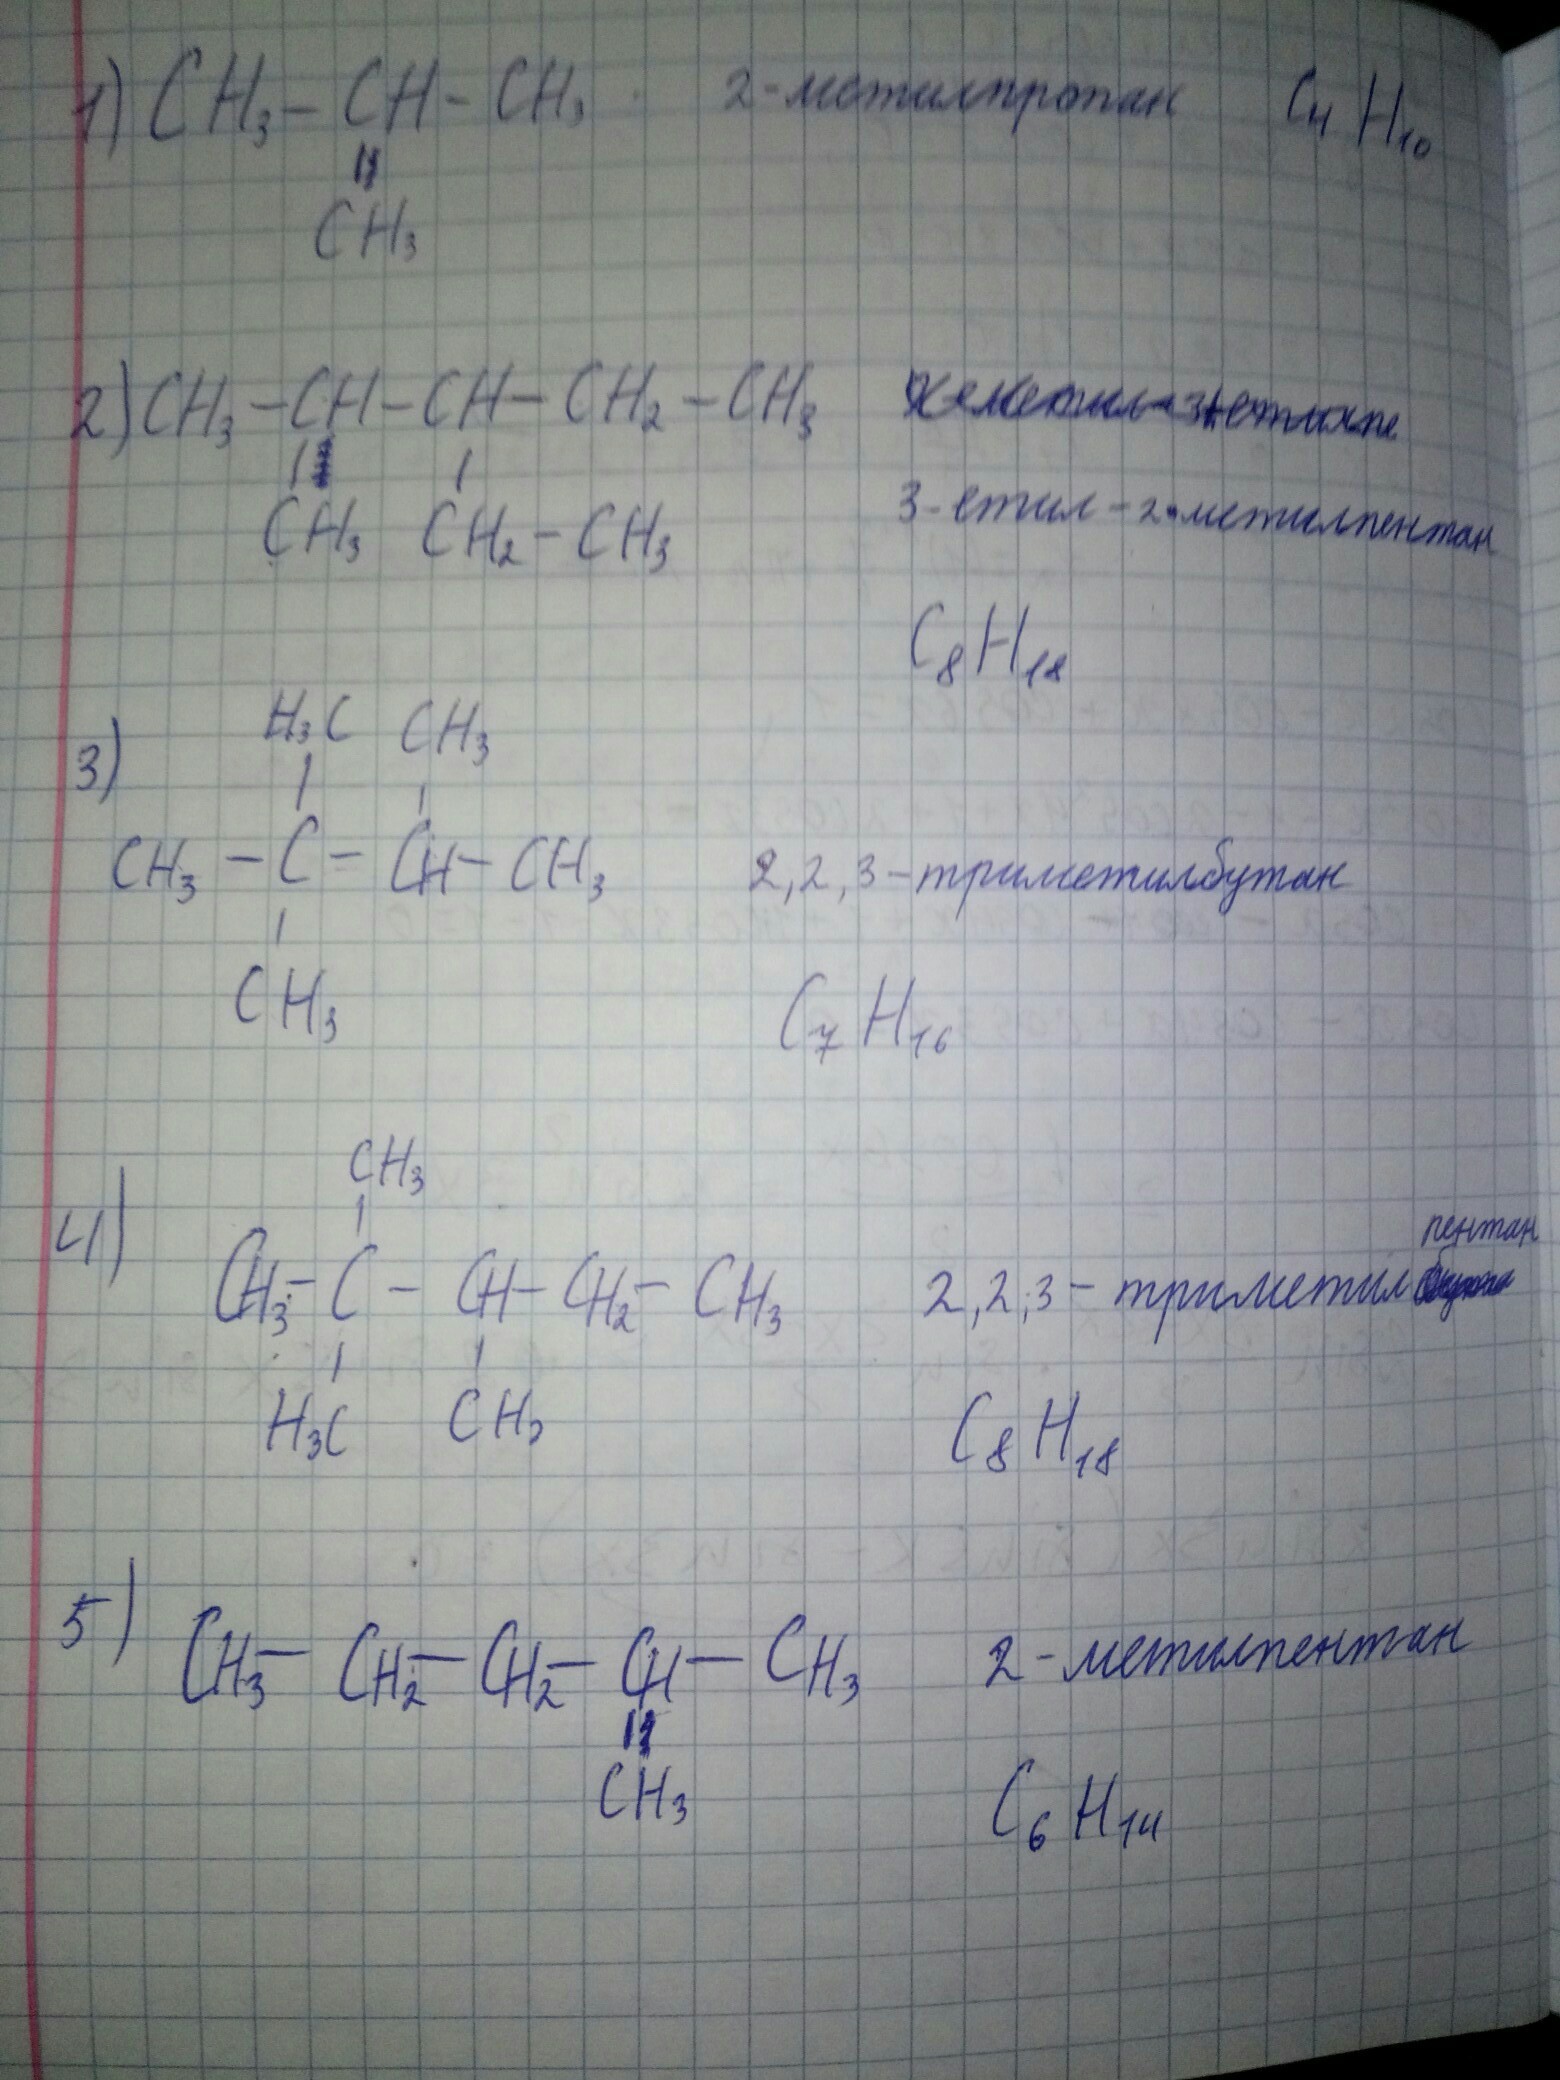 1) CH₃ – CH – CH₃ 2-метилпропан C₄H₁₀
CH₃
2) CH₃ – CH – CH – CH₂ – CH₃
CH₃ CH₂ – CH₃ 3-етил-2-метилпентан
C₈H₁₈
3) H₃C CH₃
CH₃ – C – CH – CH₃ 2,2,3-триметилбутан
CH₃ C₇H₁₆
4) CH₃
пентан
CH₃ – C – CH – CH₂ – CH₃ 2,2,3-триметил
H₃C CH₃ C₈H₁₈
5) CH₃ – CH₂ – CH₂ – CH – CH₃ 2-метилпентан
CH₃ C₆H₁₄